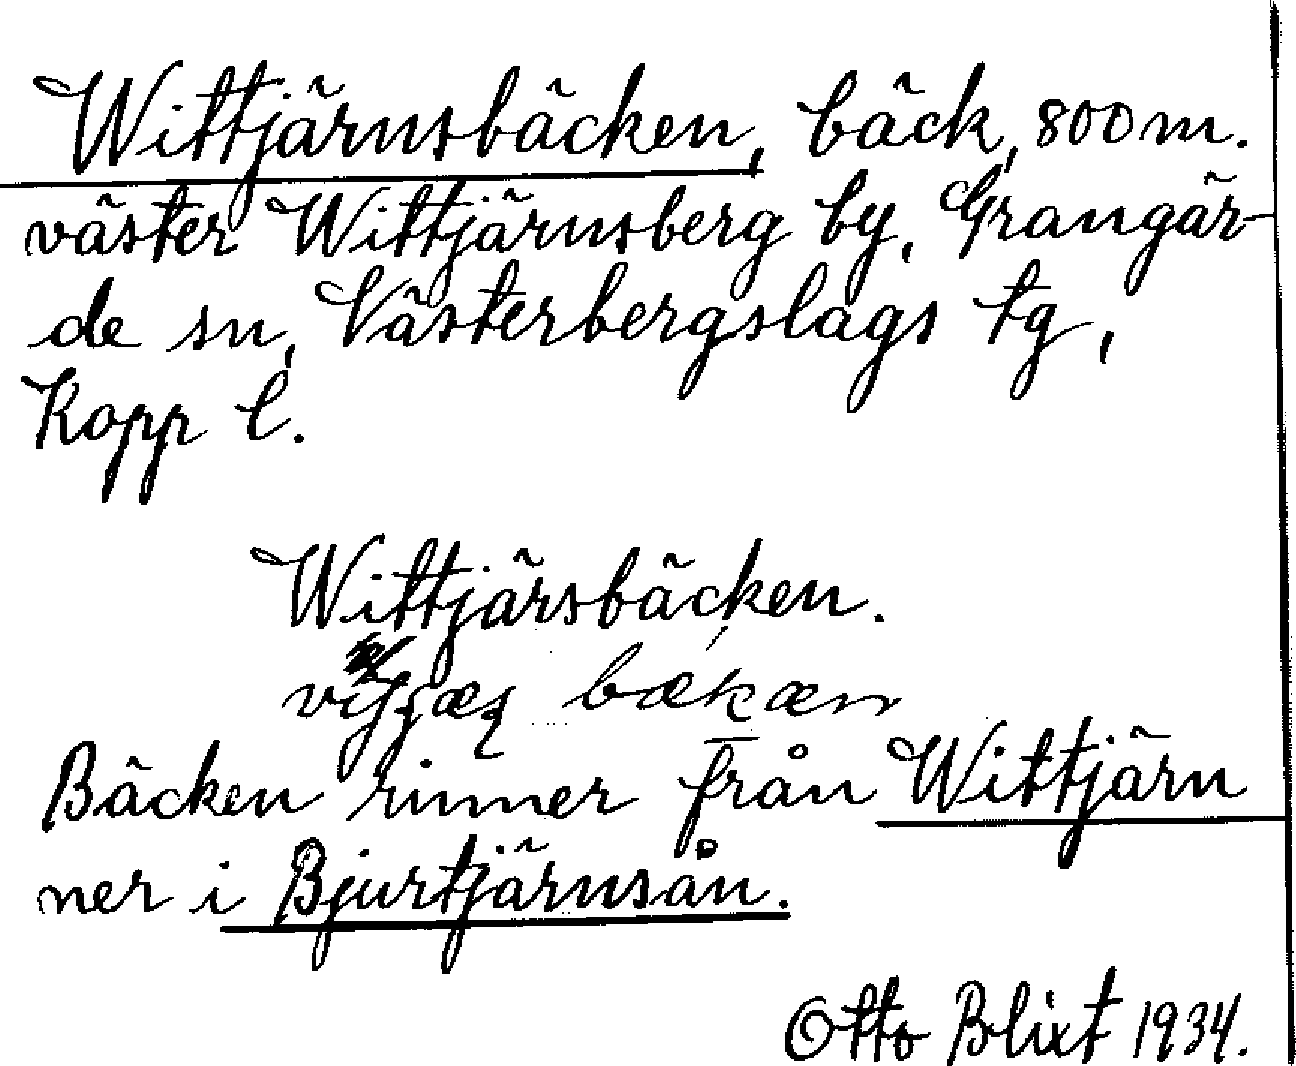 Wittjärnsbäcken, bäck, 800 m.
väster Wittjärnsberg by, Grangär-
de sn, Västerbergslags tg,
Kopp l.
Wittjärsbäcken.
bækæn
Bäcken rinner från Wittjärn
ner i Bjurtjärnsån.
Otto Blixt 1934.